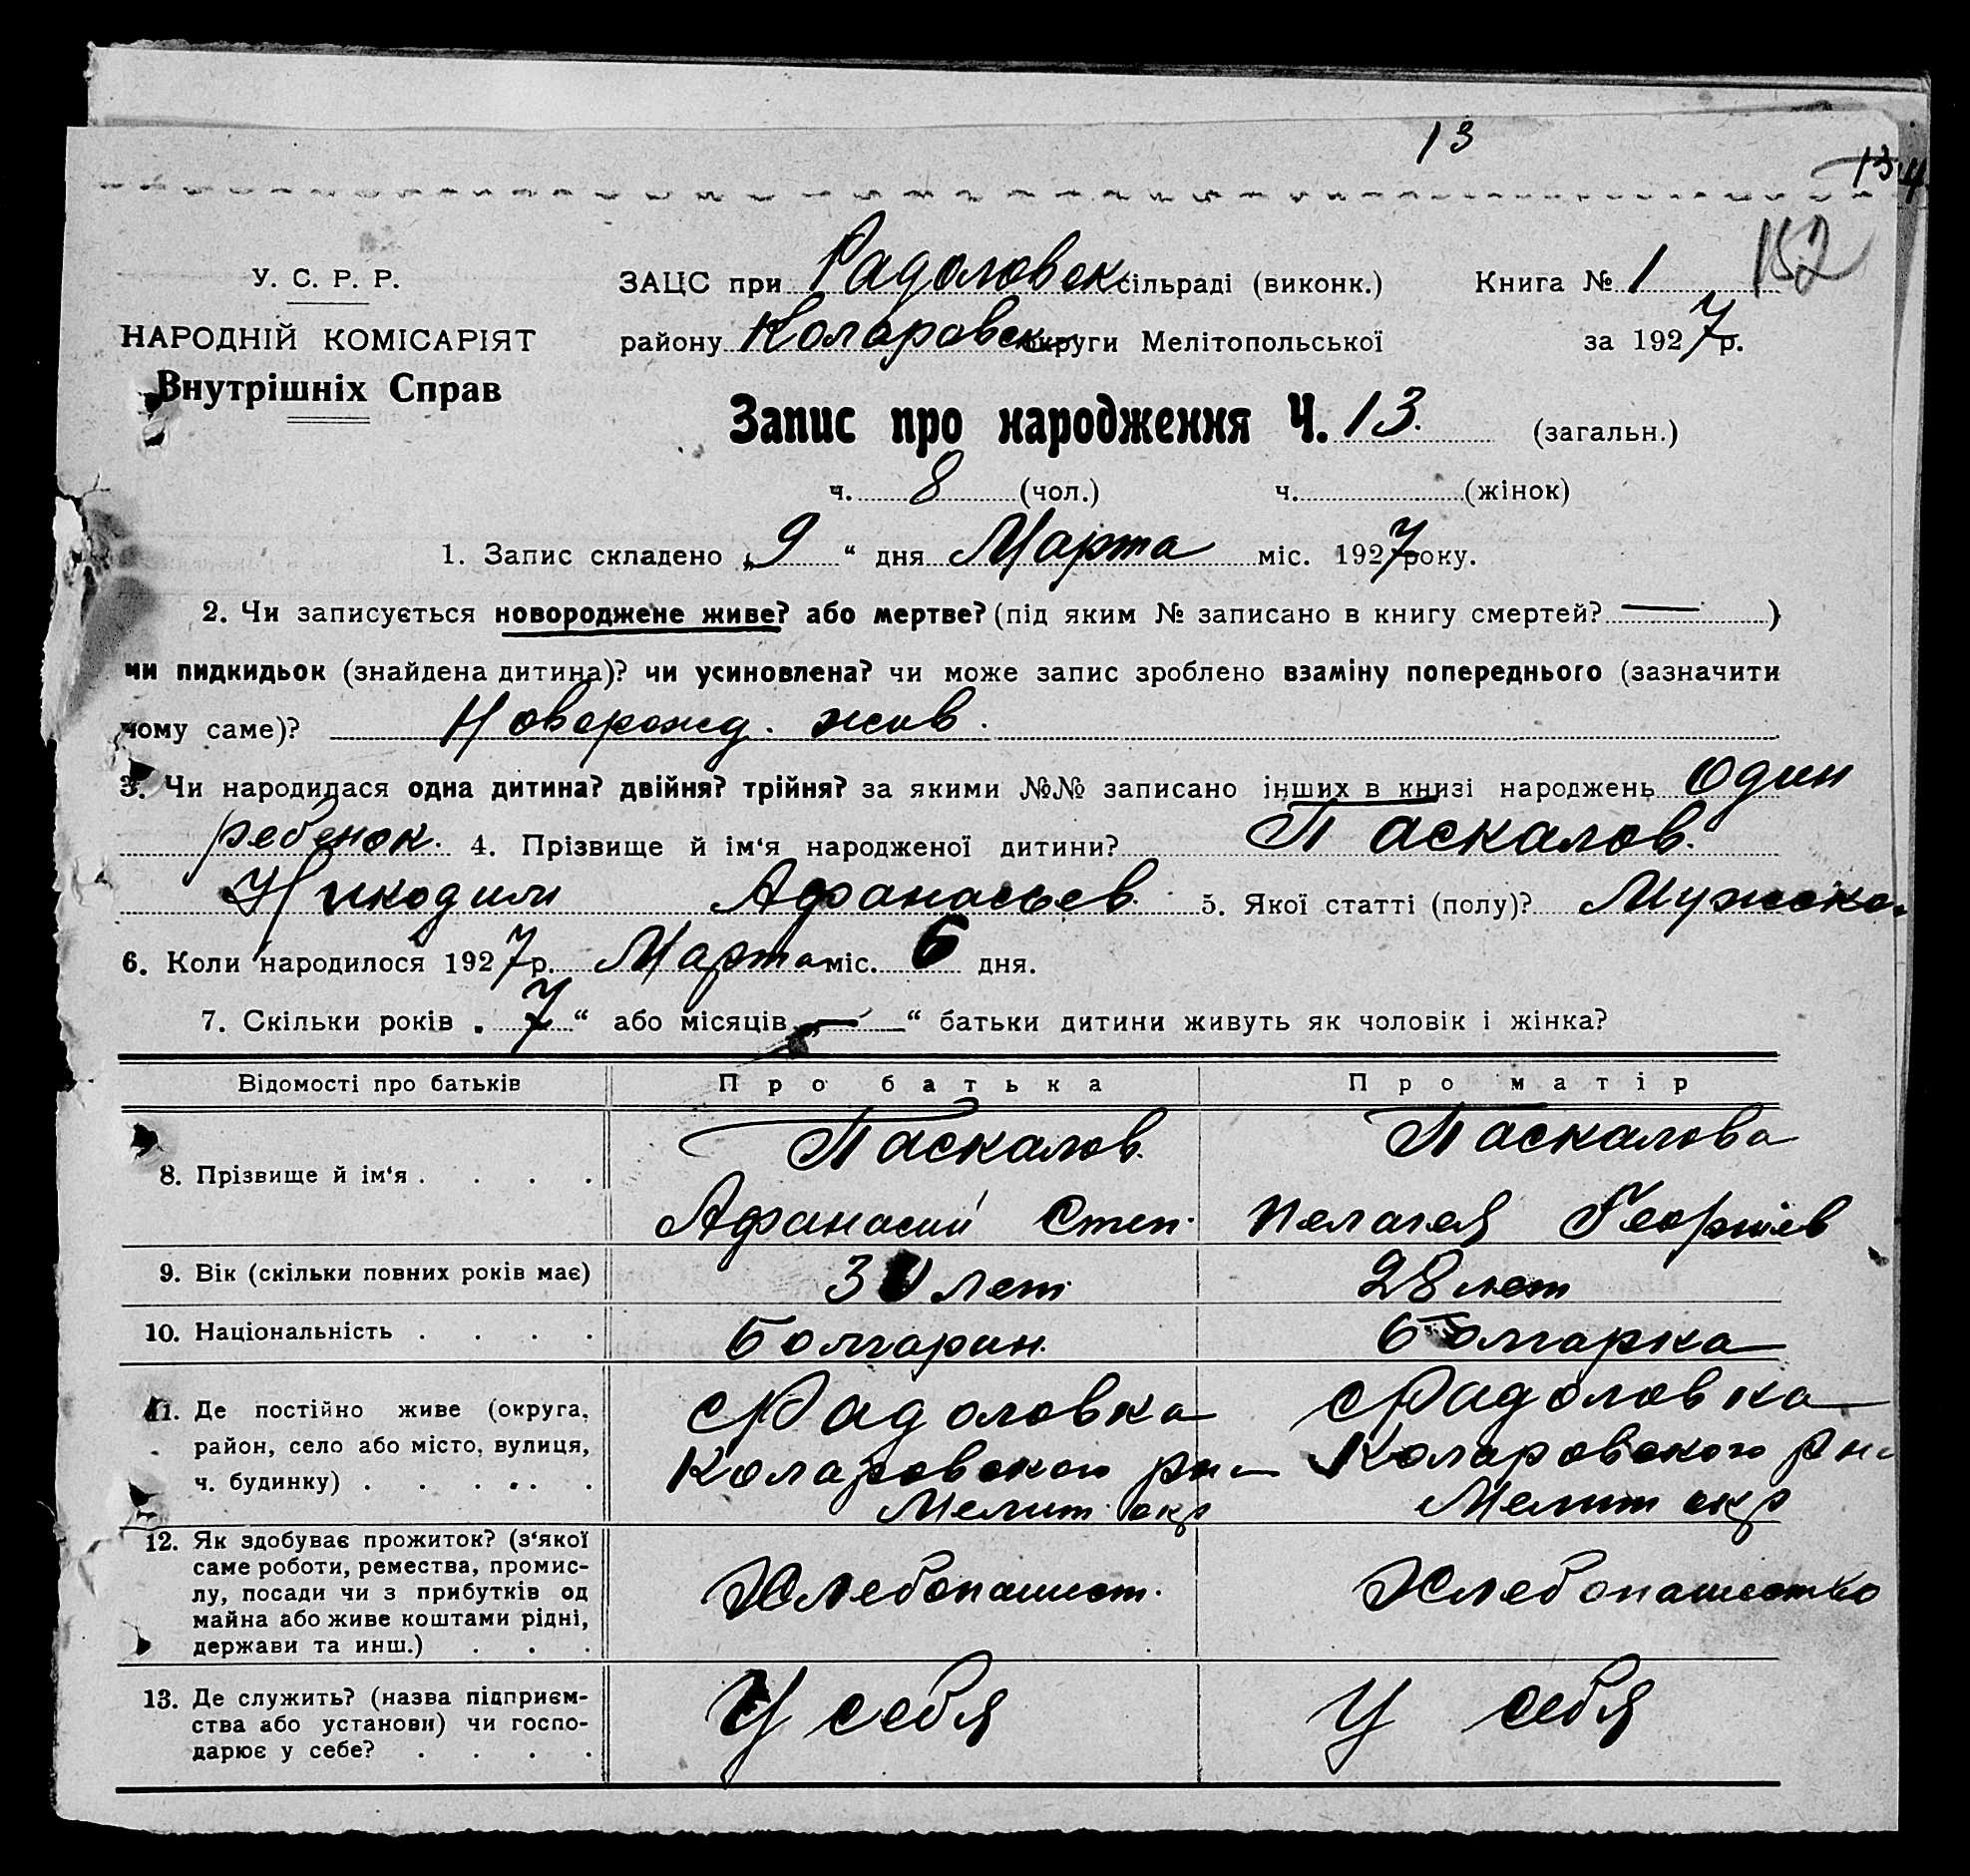 13
13 4
152
У. С. Р. Р.
НАРОДНІЙ КОМІСАРІЯТ
Внутрішніх Справ
ЗАЦС при Радоловск сільраді (виконк.) Книга № 1
району Коларовск округи Мелітопольської за 1927 р.
Запис про народження Ч. 13. (загальн.)
ч. 8 (чол.) ч. (жінок)
1. Запис складено „9“ дня Марта міс. 1927 року.
2. Чи записується новороджене живе? або мертве? (під яким № записано в книгу смертей? — )
чи пидкидьок (знайдена дитина)? чи усиновлена? чи може запис зроблено взаміну попереднього (зазначити
чому саме)? Новорожд. жив.
3. Чи народилася одна дитина? двійня? трійня? за якими №№ записано інших в книзі народжень Один
ребенок. 4. Прізвище й ім‘я народженої дитини? Паскалов.
Никодим Афанасьев. 5. Якої статті (полу)? Мужско
6. Коли народилося 1927 р. Марта міс. 6 дня.
7. Скільки років „7“ або місяців „—“ батьки дитини живуть як чоловік і жінка?
Відомості про батьків Про батька Про матір
8. Прізвище й ім‘я . . . . Паскалов. Паскалова
Афанасий Степ. Пелагея Георгиев
9. Вік (скільки повних років має) 30 лет 28 лет
10. Національність . . . . Болгарин. Болгарка
11. Де постійно живе (округа, с Радоловка с Радоловка
район, село або місто, вулиця, Коларовского рн Коларовского рн
ч. будинку) . . . . . . Мелит окр Мелит окр
12. Як здобуває прожиток? (з‘якої
саме роботи, ремества, промис-
лу, посади чи з прибутків од Хлебопашест. Хлебопашество
майна або живе коштами рідні,
держави та инш.) . . .
13. Де служить? (назва підприєм-
ства або установи) чи госпо- У себя У себя
дарює у себе? . . . .